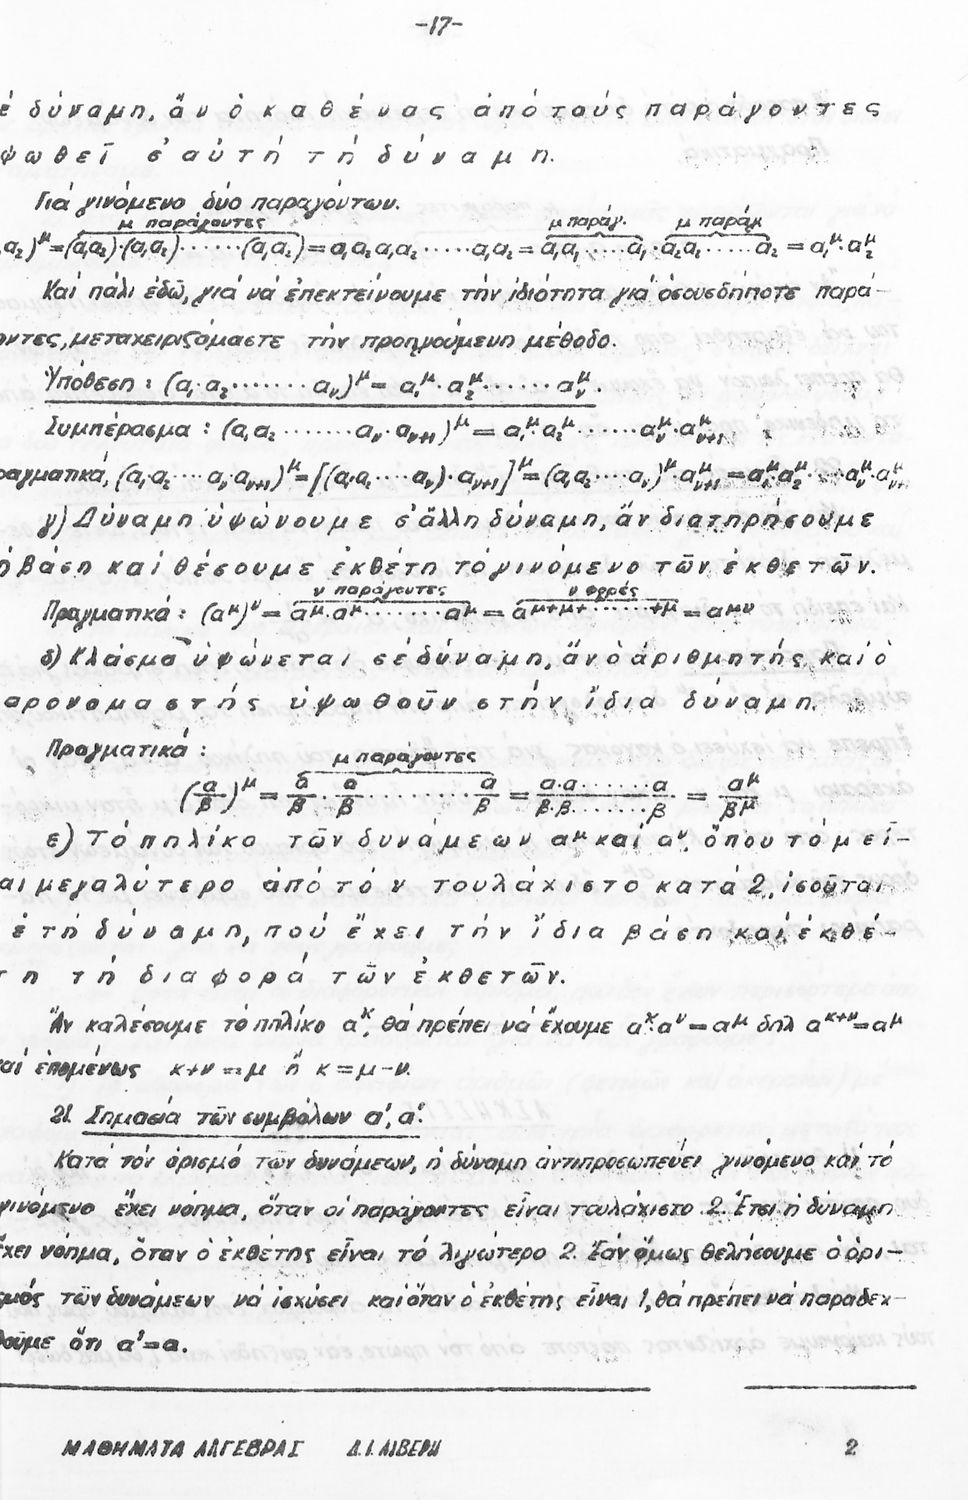 -17-
έ δύναμη, ἄν ὁ καθένας ἀπό τούς παράγοντες
ψωθεῖ σ' αὐτή τή δύναμη.
Γιά γινόμενο δύο παραγόντων.
μ παράγοντες μ παράγ. μ παράγ
α₂)^μ=(α₁α₂)·(α₁α₂)······(α₁α₂)=α₁α₂α₁α₂·····α₁α₂=α₁α₁·····α₁·α₂α₂·····α₂=α₁^μ·α₂^μ
Καί πάλι ἐδῶ, γιά νά ἐπεκτείνουμε τήν ἰδιότητα γιά ὁσουσδήποτε παρά-
οντες, μεταχειριζόμαστε τήν προηγούμενη μέθοδο.
Ὑπόθεση : (α₁·α₂·······α_ν)^μ= α₁^μ·α₂^μ······α_ν^μ.
Συμπέρασμα : (α₁α₂·······α_ν·α_ν+1)^μ=α₁^μ·α₂^μ······α_ν^μ·α_ν+1^μ
ραγματικά, (α₁·α₂····α_ν·α_ν+1)^μ=[(α₁·α₂····α_ν)·α_ν+1]^μ=(α₁α₂····α_ν)^μ·α_ν+1^μ=α₁^μα₂^μ····α_ν^μ·α_ν+1^μ
γ) Δύναμη ὑψώνουμε σ' ἄλλη δύναμη, ἄν διατηρήσουμε
ή βάση καί θέσουμε ἐκθέτη τό γινόμενο τῶν ἐκθετῶν.
ν παράγοντες ν φορές
Πραγματικά : (α^μ)^ν= α^μ·α^μ·······α^μ= α^μ+μ+······+μ=α^μν
δ) Κλάσμα ὑψώνεται σέ δύναμη, ἄν ὁ ἀριθμητής καί ὁ
αρονομαστής ὑψωθοῦν στήν ἴδια δύναμη.
Πραγματικά :
μ παράγοντες
(α/β)^μ= α/β·α/β·········α/β = α·α·······α/β·β·······β = α^μ/β^μ
ε) Τό πηλίκο τῶν δυνάμεων α^μ καί α^ν, ὅπου τό μ εἶ-
αι μεγαλύτερο ἀπό τό ν τουλάχιστο κατά 2, ἰσοῦται
έ τή δύναμη, πού ἔχει τήν ἴδια βάση καί ἐκθέ-
τη τή διαφορά τῶν ἐκθετῶν.
Ἄν καλέσουμε τό πηλίκο α^κ, θά πρέπει νά ἔχουμε α^κ·α^ν=α^μ δηλ α^κ+ν=α^μ
αί ἑπομένως κ+ν=μ ἤ κ=μ-ν.
21. Σημασία τῶν συμβόλων α¹, α⁰.
Κατά τόν ὁρισμό τῶν δυνάμεων, ἡ δύναμη ἀντιπροσωπεύει γινόμενο καί τό
γινόμενο ἔχει νόημα, ὅταν οἱ παράγοντες εἶναι τουλάχιστο 2. Ἔτσι ἡ δύναμη
ἔχει νόημα, ὅταν ὁ ἐκθέτης εἶναι τό λιγώτερο 2. Ἐάν ὅμως θελήσουμε ὁ ὁρι-
σμός τῶν δυνάμεων νά ἰσχύσει καί ὅταν ὁ ἐκθέτης εἶναι 1, θά πρέπει νά παραδεχ-
θοῦμε ὅτι α¹=α.
ΜΑΘΗΜΑΤΑ ΑΛΓΕΒΡΑΣ Δ.Ι. ΛΙΒΕΡΗ 2